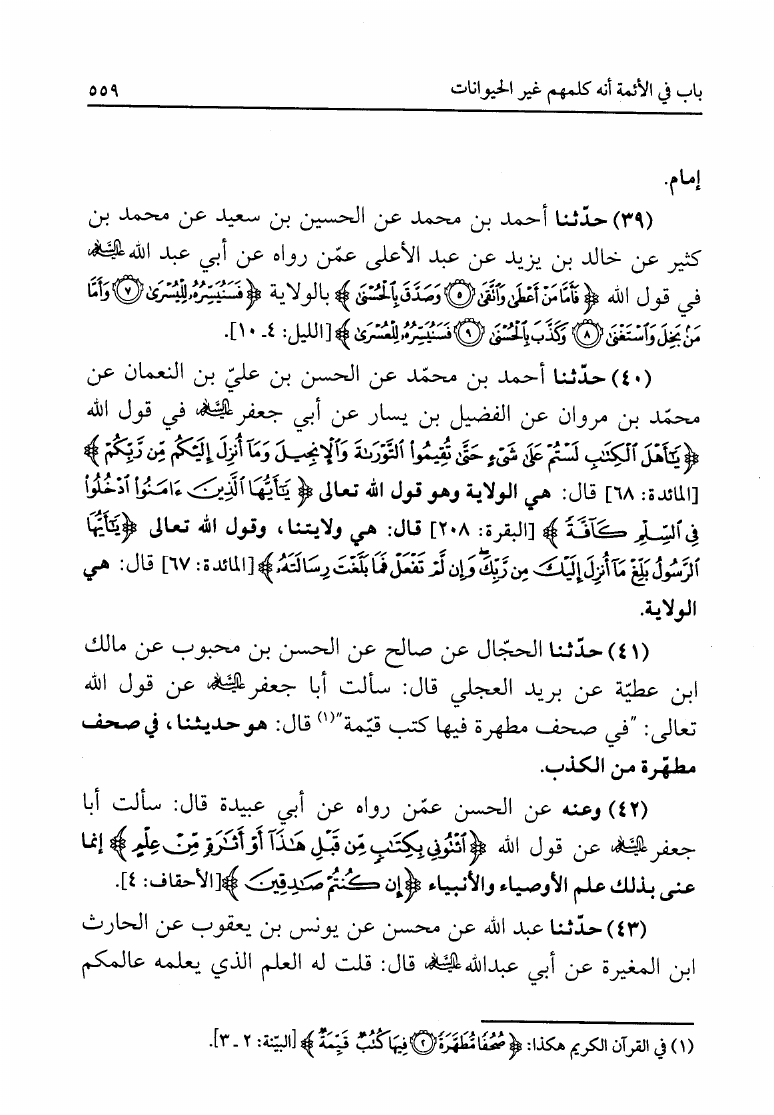 باب في الأئمة أنه كلمهم غير الحيوانات ٥٥٩
إمام.
(٣٩) حدّثنا أحمد بن محمد عن الحسين بن سعيد عن محمد بن
كثير عن خالد بن يزيد عن عبد الأعلى عمّن رواه عن أبي عبد الله عليه السلام
في قول الله ﴿فَأَمَّا مَنْ أَعْطَىٰ وَاتَّقَىٰ ۝٥ وَصَدَّقَ بِالْحُسْنَىٰ﴾ بالولاية ﴿فَسَنُيَسِّرُهُ لِلْيُسْرَىٰ ۝٧ وَأَمَّا
مَنْ بَخِلَ وَاسْتَغْنَىٰ ۝٨ وَكَذَّبَ بِالْحُسْنَىٰ ۝٩ فَسَنُيَسِّرُهُ لِلْعُسْرَىٰ﴾ [الليل: ٤ـ ١٠].
(٤٠) حدّثنا أحمد بن محمّد عن الحسن بن عليّ بن النعمان عن
محمّد بن مروان عن الفضيل بن يسار عن أبي جعفر عليه السلام في قول الله
﴿يَٰٓأَهْلَ ٱلْكِتَٰبِ لَسْتُمْ عَلَىٰ شَىْءٍ حَتَّىٰ تُقِيمُوا۟ ٱلتَّوْرَىٰةَ وَٱلْإِنجِيلَ وَمَآ أُنزِلَ إِلَيْكُم مِّن رَّبِّكُمْ﴾
[المائدة: ٦٨] قال: هي الولاية وهو قول الله تعالى ﴿يَٰٓأَيُّهَا ٱلَّذِينَ ءَامَنُوا۟ ٱدْخُلُوا۟
فِى ٱلسِّلْمِ كَآفَّةً﴾ [البقرة: ٢٠٨] قال: هي ولايتنا، وقول الله تعالى ﴿يَٰٓأَيُّهَا
ٱلرَّسُولُ بَلِّغْ مَآ أُنزِلَ إِلَيْكَ مِن رَّبِّكَ ۖ وَإِن لَّمْ تَفْعَلْ فَمَا بَلَّغْتَ رِسَالَتَهُۥ﴾ [المائدة: ٦٧] قال: هي
الولاية.
(٤١) حدّثنا الحجّال عن صالح عن الحسن بن محبوب عن مالك
ابن عطيّة عن بريد العجلي قال: سألت أبا جعفر عليه السلام عن قول الله
تعالى: "في صحف مطهرة فيها كتب قيّمة"(١) قال: هو حديثنا، في صحف
مطهّرة من الكذب.
(٤٢) وعنه عن الحسن عمّن رواه عن أبي عبيدة قال: سألت أبا
جعفر عليه السلام عن قول الله ﴿ٱئْتُونِى بِكِتَٰبٍ مِّن قَبْلِ هَٰذَآ أَوْ أَثَٰرَةٍ مِّنْ عِلْمٍ﴾ إنما
عنى بذلك علم الأوصياء والأنبياء ﴿إِن كُنتُمْ صَٰدِقِينَ﴾ [الأحقاف: ٤].
(٤٣) حدّثنا عبد الله عن محسن عن يونس بن يعقوب عن الحارث
ابن المغيرة عن أبي عبدالله عليه السلام قال: قلت له العلم الذي يعلمه عالمكم
(١) في القرآن الكريم هكذا: ﴿صُحُفًا مُّطَهَّرَةً ۝٢ فِيهَا كُتُبٌ قَيِّمَةٌ﴾ [البيّنة: ٢ ـ ٣].